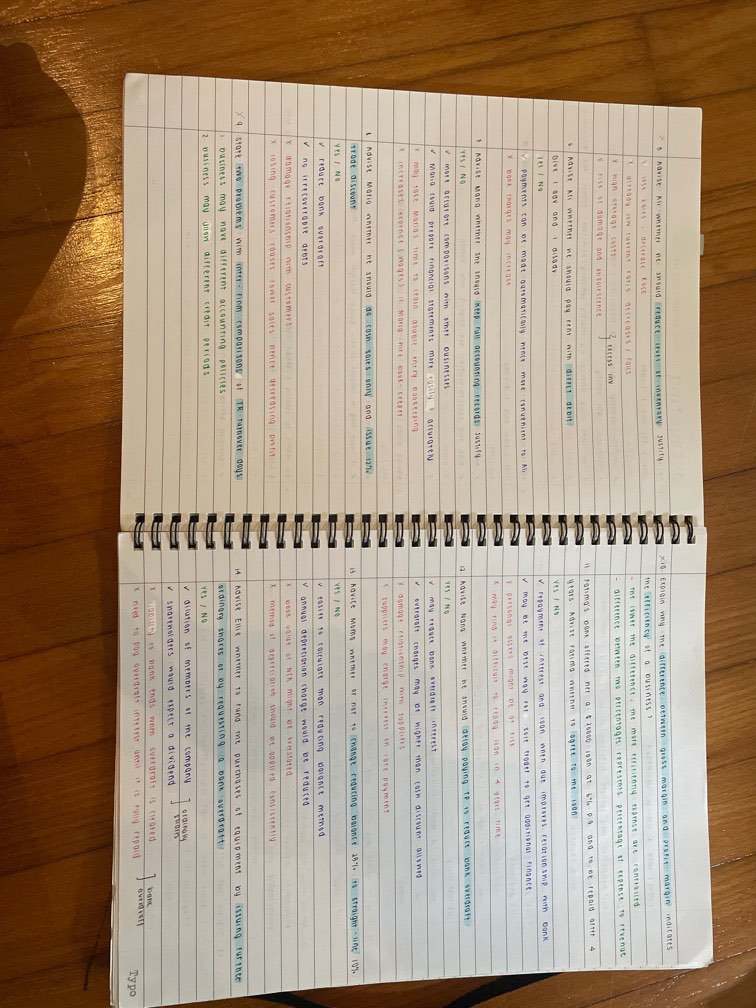 5 Advise Ali whether he should reduce level of inventory. Justify
high storage costs
risk of damage and obsolescence
excess inv
6 Advise Ali whether he should pay rent with direct debit
Give 1 adv and 1 disadv
Yes / No
✓ payments can be made automatically hence more convenient to Ali
x bank charges may increase
7 Advise Maria whether she should keep full accounting records. Justify
Yes / No
✓ more accurate comparisons with other businesses
✓ Maria could prepare financial statements more easily & accurately
x may take Maria's time to learn double entry bookkeeping
x increases expense (wages) if Maria hire book-keeper
8 Advise Mario whether he should do cash sales only and issue 12%
trade discount
Yes / No
✓ reduce bank overdraft
✓ no irrecoverable debts
x damage relationship with customers
x losing customers causes lower sales hence decreasing profit
9 State two problems with inter-firm comparisons of TR turnover days
1. business may have different accounting policies
2. business may given different credit periods
10 Explain why the difference between gross margin and profit margin indicates
the efficiency of a business?
- the lower the difference, the more efficiently expense are controlled
difference between two percentages represents percentage of expense to revenue
11 Fatima's bank offered her a $ loan at 6% p.a. and to be repaid after 4
years. Advise Fatima whether to agree to the loan
Yes / No
✓ repayment of interest and loan when due improves relationship with bank
✓ may be the best way for sole trader to get additional finance
x personal assets might be at risk
x may find it difficult to repay loan in 4 years time
12 Advise Nana whether he should delay paying TP to reduce bank overdraft
Yes / No
✓ may reduce bank overdraft interest
✓ overdraft charges may be higher than cash discount allowed
x damage relationship with suppliers
x suppliers may charge interest on late payment
13 Advise Momo whether or not to change reducing balance 25% to straight-line 10%
Yes / No
✓ easier to calculate than reducing balance method
✓ annual depreciation charge would be reduced
x book value of NCA might be overstated
x method of depreciation should be applied consistently
14 Advise Ellie whether to fund the purchases of equipment by issuing further
ordinary shares or by requesting a bank overdraft
Yes / No
✓ dilution of members of the company
✓ shareholders would expect a dividend
ordinary shares
x liability to bank ends when overdraft is repaid
x need to pay overdraft interest until it is fully repaid
bank overdraft
Typo